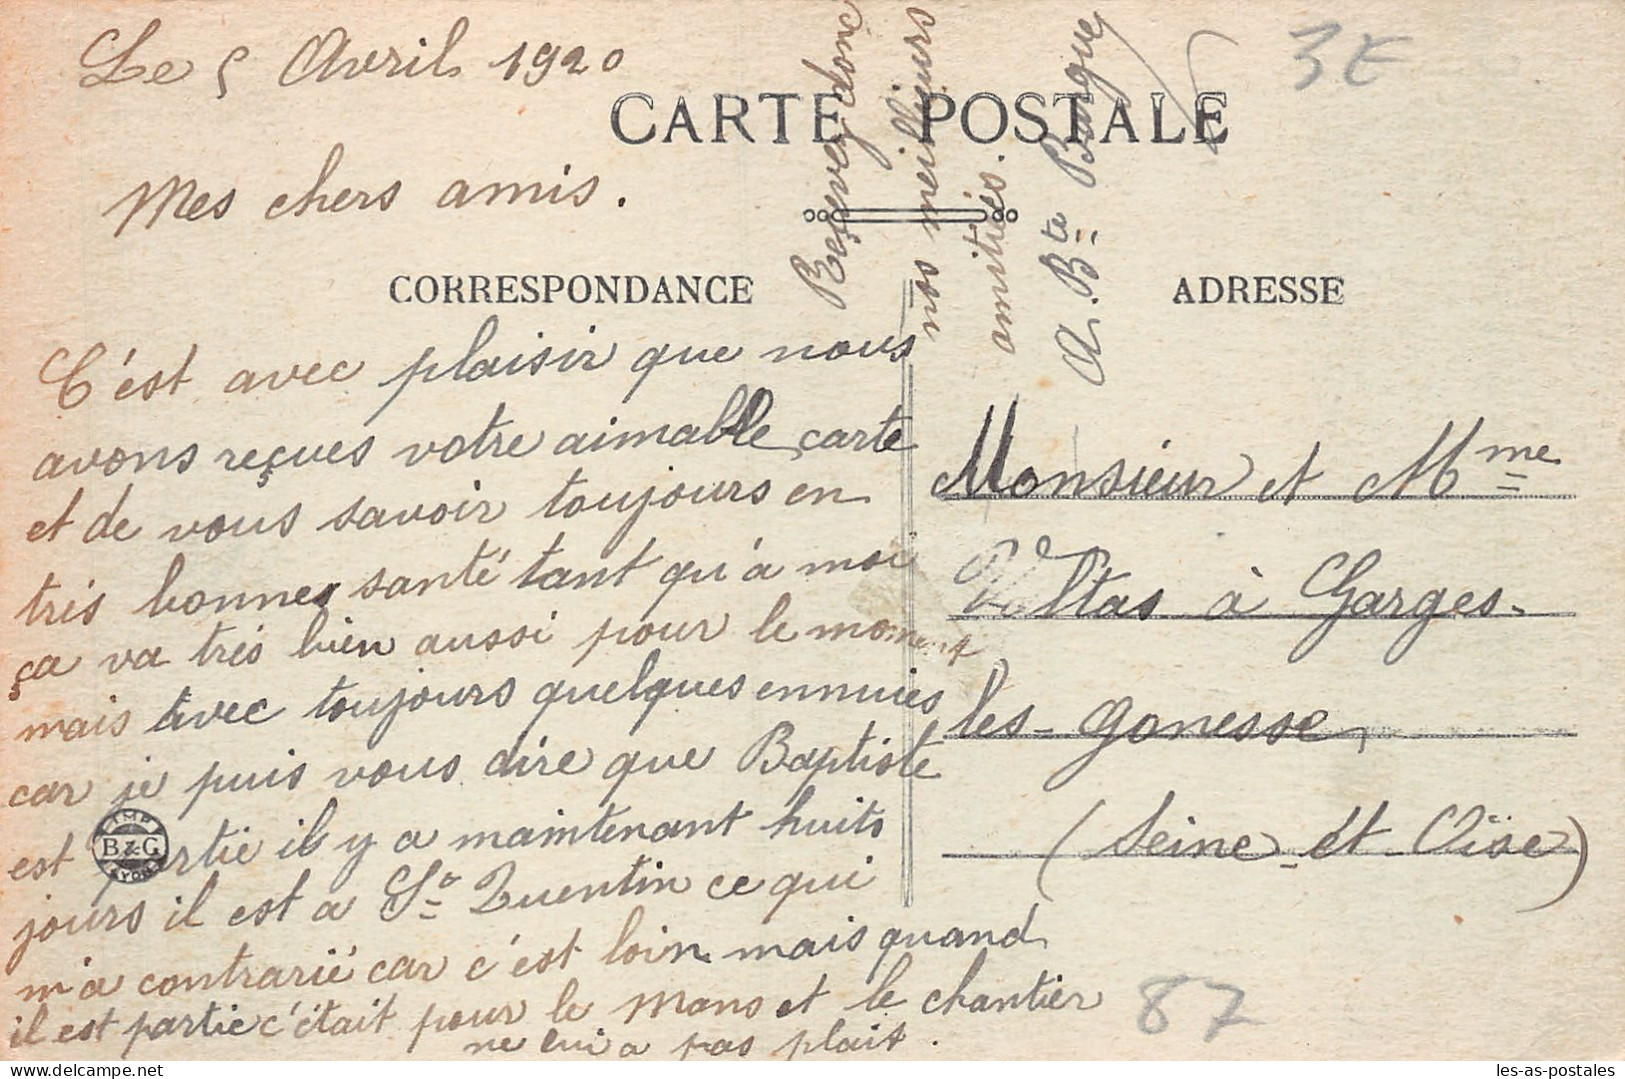 Le 5 Avril 1920
3E
CARTE POSTALE
Mes chers amis.
CORRESPONDANCE
ADRESSE
C'est avec plaisir que nous
avons reçues votre aimable carte
et de vous savoir toujours en
très bonnes santé tant qu'à moi
ça va très bien aussi pour le moment
mais avec toujours quelques ennuies
car je puis vous dire que Baptiste
est partie il y a maintenant huits
jours il est a St Quentin ce qui
m'a contrarié car c'est loin mais quand
il est partie c'était pour le Mans et le chantier
ne lui a pas plait.
Reçevez donc
nos meilleurs
amitiés.
A. Bte Bangue
Monsieur et Mme
Valtas à Garges-
les-Gonesse
(Seine-et-Oise)
IMP.
B & G
LYON
87
les-as-postales